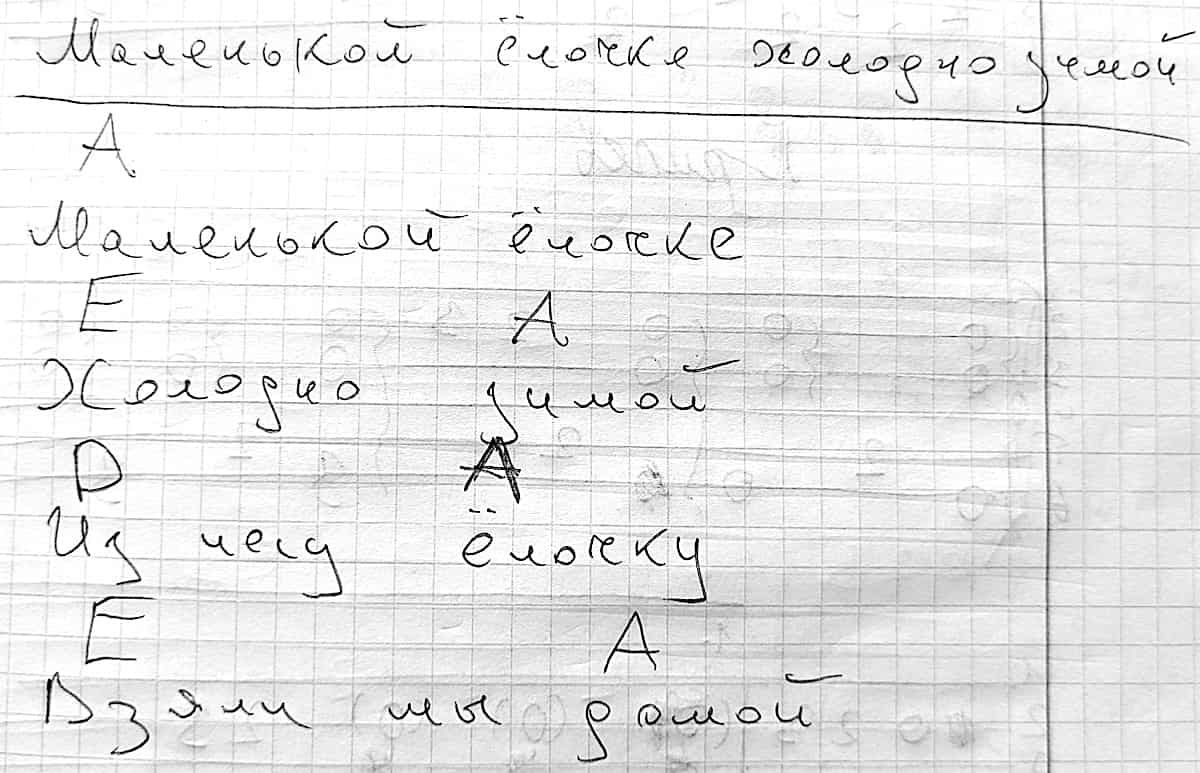 Маленькой ёлочке холодно зимой
A
Маленькой ёлочке
E A
Холодно зимой
D A
Из лесу ёлочку
E A
Взяли мы домой